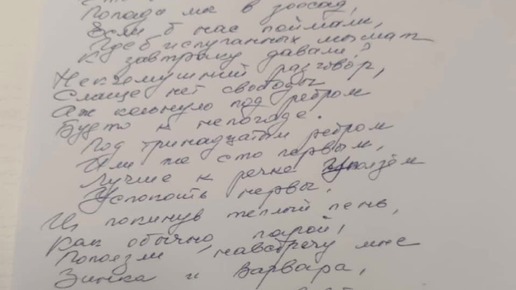 Попади мы в зоосад,
Если б нас поймали,
Где б испуганных мышат
К завтраку давали?
Никомушний разговор,
Слаще нет свободы
Аж кольнуло под ребром
Будто к непогоде.
Под тринадцатым ребром
Или же сто первым,
Лучше к речке уползём
Успокоить нервы,
И покинув тёплый пень,
Как обычно, парой,
Поползли навстречу мне
Зинка и Варвара,